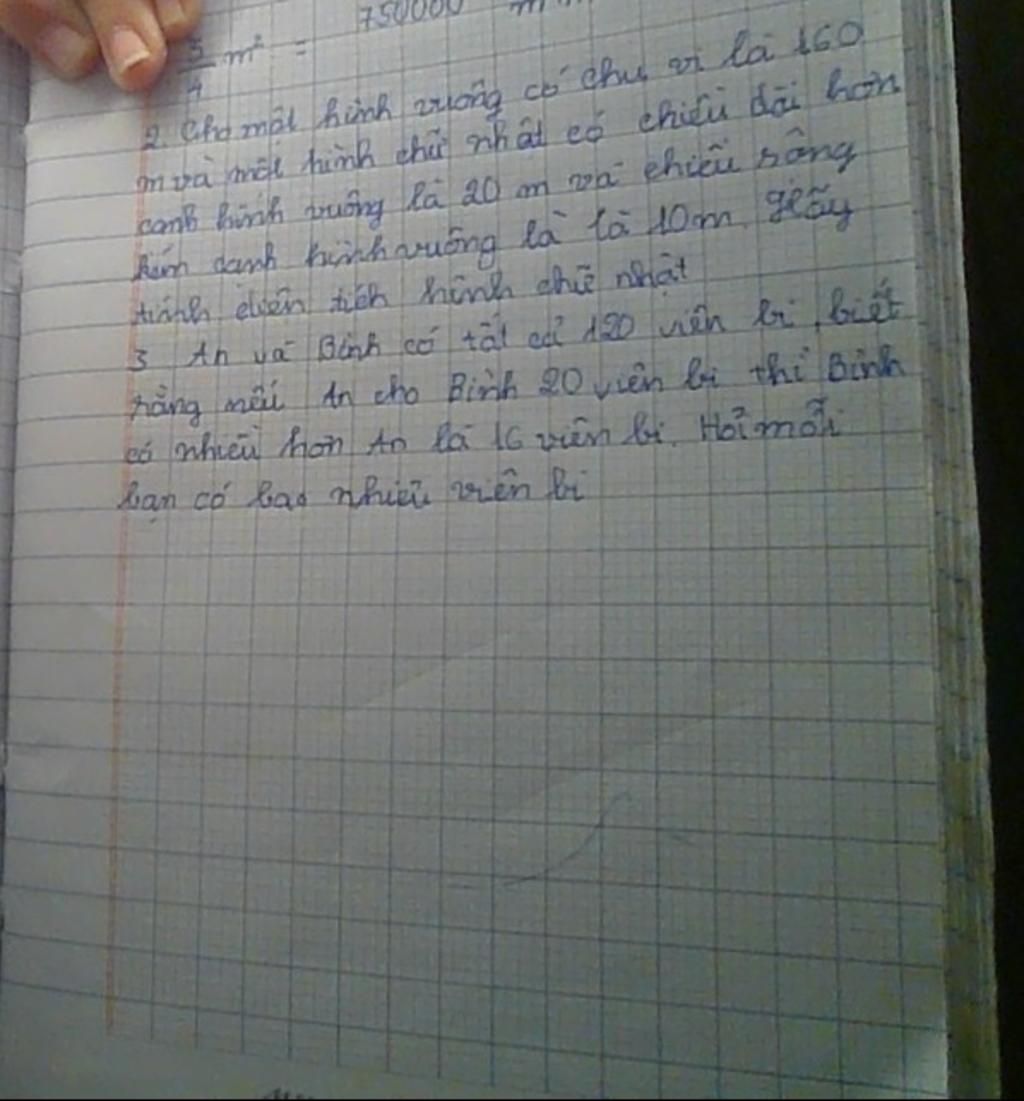 750000
3/4 m² =
2. Cho một hình vuông có chu vi là 160
m và một hình chữ nhật có chiều dài hơn
cạnh hình vuông là 20 m và chiều rộng
kém cạnh hình vuông là là 10m. Hãy
tính diện tích hình chữ nhật
3 An và Bình có tất cả 120 viên bi, biết
rằng nếu An cho Bình 20 viên bi thì Bình
có nhiều hơn An là 16 viên bi. Hỏi mỗi
bạn có bao nhiêu viên bi